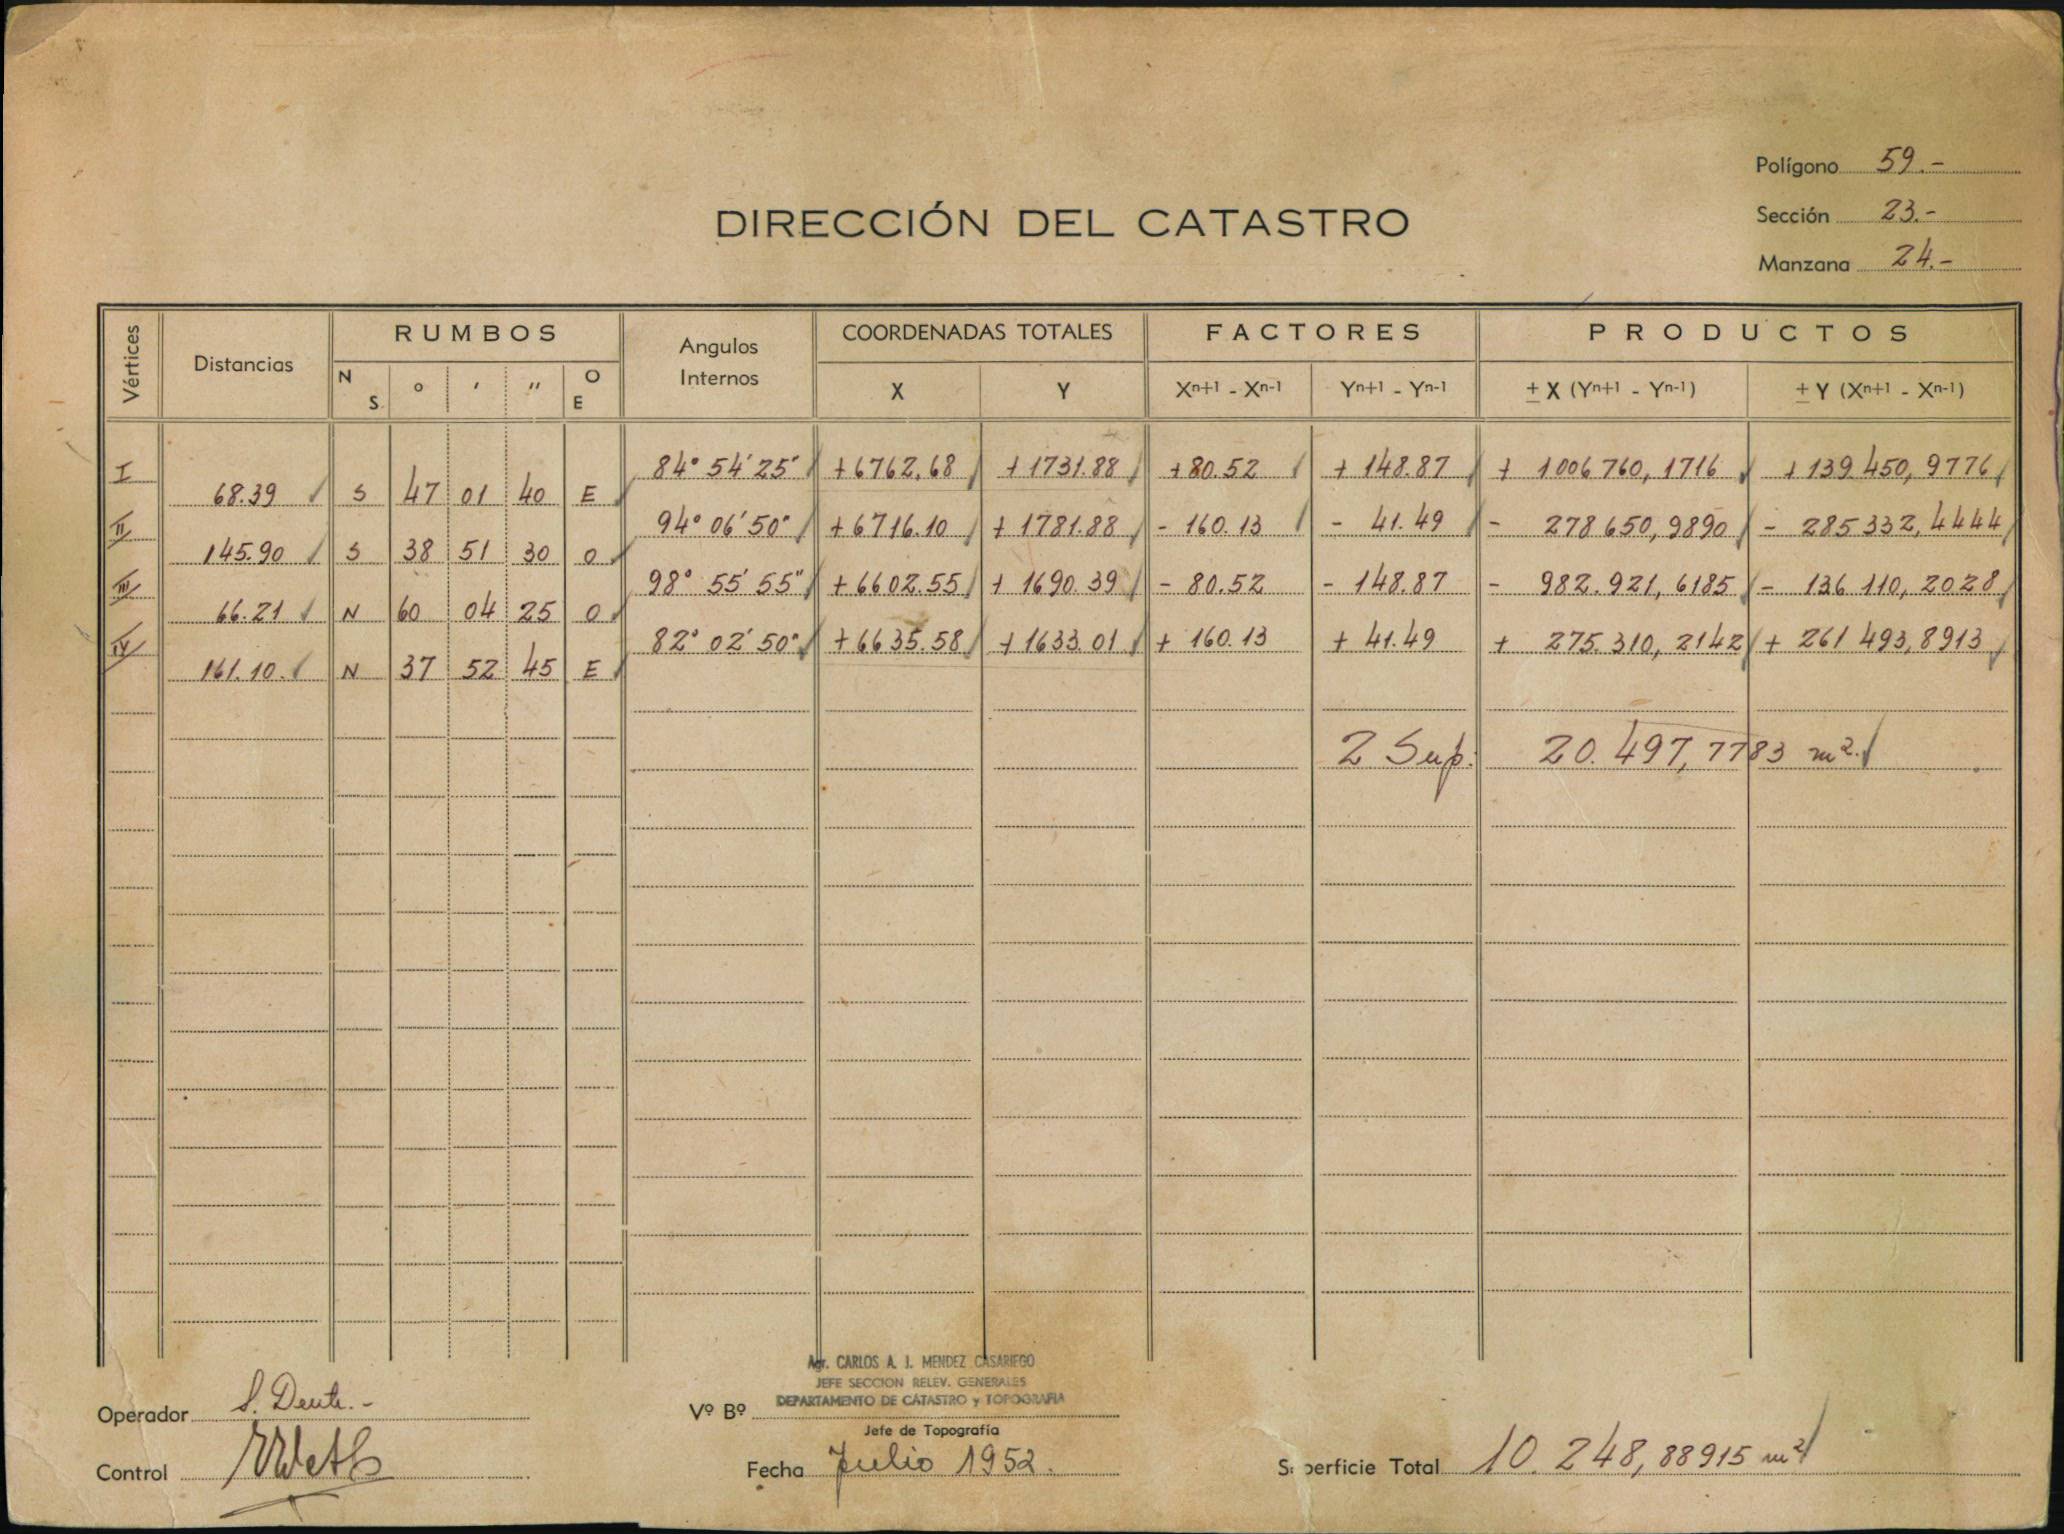 Polígono 59.-
DIRECCIÓN DEL CATASTRO
Sección 23.-
Manzana 24.-
Vértices Distancias RUMBOS Angulos Internos COORDENADAS TOTALES FACTORES PRODUCTOS
N S ° ' '' O E X Y Xn+1 - Xn-1 Yn+1 - Yn-1 ± X (Yn+1 - Yn-1) ± Y (Xn+1 - Xn-1)
I 84° 54' 25" +6762,68 +1731.88 +80.52 +148.87 + 1006760,1716 +139.450,9776
68.39 S 47 01 40 E
II 94° 06' 50" +6716.10 +1781.88 - 160.13 - 41.49 - 278650,9890 - 285332,4444
145.90 S 38 51 30 O
III 98° 55' 55" +6602.55 +1690.39 - 80.52 - 148.87 - 982.921,6185 - 136110,2028
66.21 N 60 04 25 O
IV 82° 02' 50" +6635.58 +1633.01 + 160.13 + 41.49 + 275.310,2142 + 261493,8913
161.10. N 37 52 45 E
2 Sup: 20.497,7783 m².
Agr. CARLOS A. J. MENDEZ CASARIEGO
JEFE SECCION RELEV. GENERALES
DEPARTAMENTO DE CATASTRO y TOPOGRAFIA
Operador
Vº Bº
Jefe de Topografía
Control
Fecha Julio 1952.
Superficie Total 10.248,88915 m²